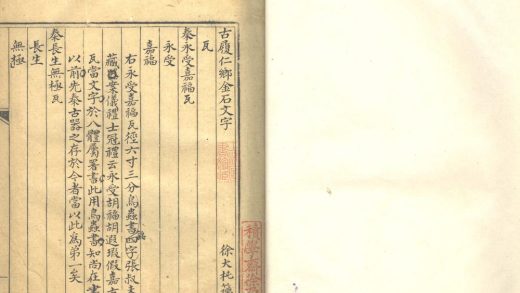 古履仁鄉金石文字
徐大椿
瓦
秦永受嘉福瓦
永受
嘉福
右永受嘉福瓦徑六寸三分鳥蟲書四字張叔未
藏器案儀禮士冠禮云永受胡福胡遐瑕假嘉古
瓦當文字於八體屬署書此用鳥蟲書知尚在
以前先秦古器之存於今者當以此為第一矣
秦長生無極瓦
長生
無極